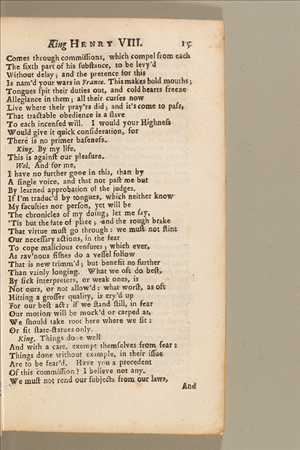 King HENRY VIII. 15
Comes through commissions, which compel from each
The sixth part of his substance, to be levy'd
Without delay; and the pretence for this
Is nam'd your wars in France. This makes bold mouths;
Tongues spit their duties out, and cold hearts freeze
Allegiance in them; all their curses now
Live where their pray'rs did; and it's come to pass,
That tractable obedience is a slave
To each incensed will. I would your Highness
Would give it quick consideration, for
There is no primer baseness.
King. By my life,
This is against our pleasure.
Wol. And for me,
I have no further gone in this, than by
A single voice, and that not past me but
By learned approbation of the judges.
If I'm traduc'd by tongues, which neither know
My faculties nor person, yet will be
The chronicles of my doing; let me say,
'Tis but the fate of place; and the rough brake
That virtue must go through: we must not stint
Our necessary actions, in the fear
To cope malicious censures; which ever,
As rav'nous fishes do a vessel follow
That is new trimm'd; but benefit no further
Than vainly longing. What we oft do best,
By sick interpreters, or weak ones, is
Not ours, or not allow'd: what worst, as oft
Hitting a grosser quality, is cry'd up
For our best act: if we stand still, in fear
Our motion will be mock'd or carped at,
We should take root here where we sit:
Or sit state-statues only.
King. Things done well
And with a care, exempt themselves from fear:
Things done without example, in their issue
Are to be fear'd. Have you a precedent
Of this commission? I believe not any.
We must not rend our subjects from our laws,
And